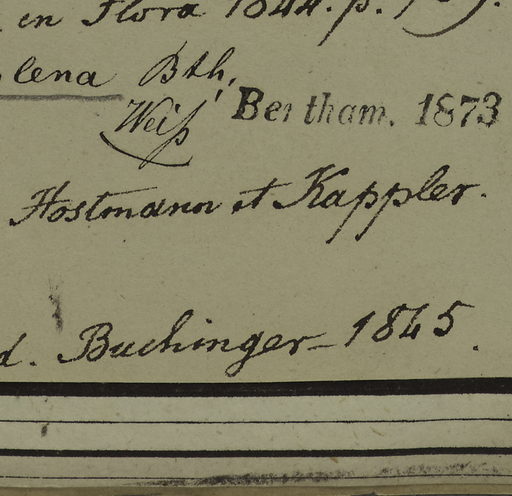 en Flora 1844. p.
lena Bth.
Weiß
Bertham. 1873
Hostmann et Kappler.
d. Buchinger – 1845.